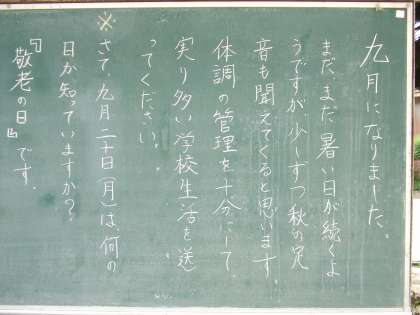 九月になりました。
まだ、まだ暑い日が続くよ
うですが、少しずつ秋の足
音も聞えてくると思います。
体調の管理を十分にして、
実り多い学校生活を送
ってください。
※さて、九月二十日(月)は、何の
日か知っていますか？
『敬老の日』です。